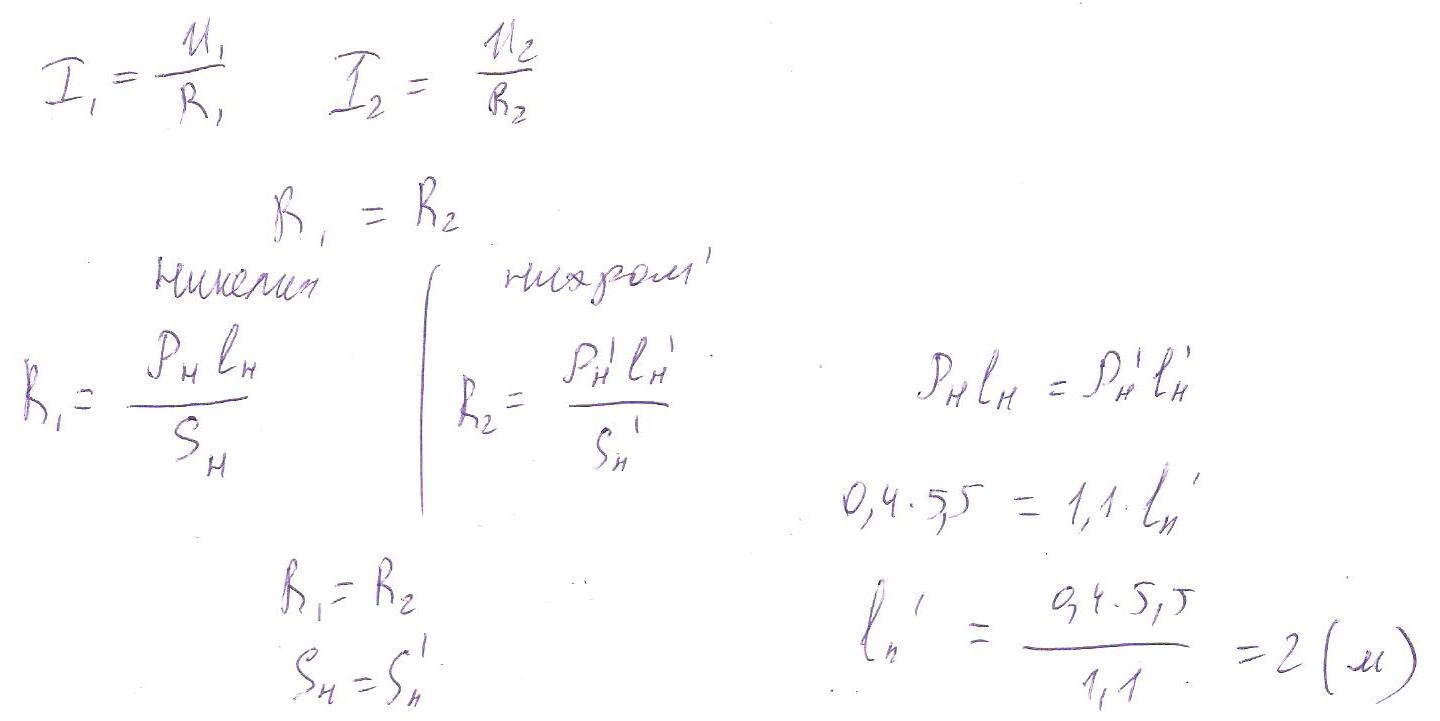 I₁ = U₁/R₁   I₂ = U₂/R₂
R₁ = R₂
никелин | нихром'
R₁ = ρн lн / Sн | R₂ = ρн' lн' / Sн'
R₁ = R₂
Sн = Sн'
ρн lн = ρн' lн'
0,4 · 5,5 = 1,1 · lн'
lн' = 0,4 · 5,5 / 1,1 = 2 (м)